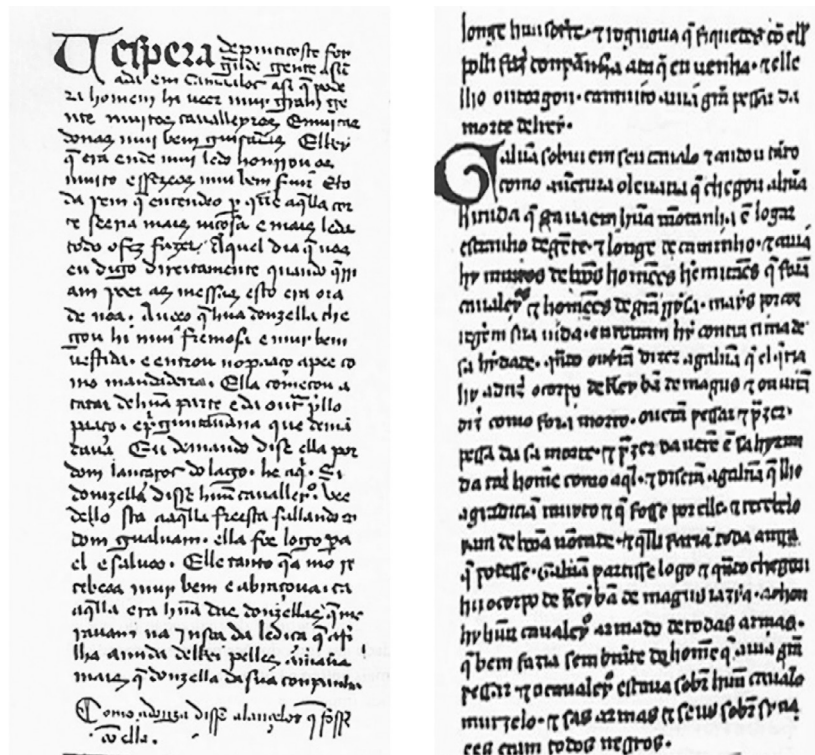 Vespera de pinticoste foy
grãde gente asũ
ada em Camaalot asi q̃ pode
ra homem hi veer mui gram ge
nte muitos cavalleyros E muitas
donas mui bem guisadas Elrey
q̃ era ende mui ledo honrrou os
muito e fezeos mui bem servir E to
da rem q̃ entendeo per que aq̃lla cor
te seeria mais viçosa e mais leda
todo o fez fazer Aquel dia q̃ vos
eu digo direitamente quando q̃ri
am poer as mesas esto era ora
de noa. Aveeo q̃ hũa donzella che
gou hi mui fremosa e muy bem
vestida. e entrou no paaço a pee co
mo mandadeira. Ella começou a
catar de hũa parte e da outra pello
paaço. e pregũtavana que deman
dava. Eu demando disse ella por
dom lancarot do lago. he aqui. Si
donzella disse hũu cavalleyro. vee
dello sta aaq̃lla freesta fallando cõ
dom gualvam. ella foy logo pera
el e salvoo. Elle tanto q̃ a vio re
cebeoa muy bem e abraçoua. ca
aq̃lla era hũa das donzellas q̃ mo
ravam na insoa da lediça q̃ a fi
lha amida delrei pelles amava
mais q̃ donzella da sua companha
Como a donzella disse a lançalot q̃ fosse
cõ ella.
longe hũu
põssa fazer companhia ata q̃ eu venha. ⁊ elle
lho outorgou. cam muito avia grã pesar da
morte del rey.
Galuã sobiu em seu cavalo ⁊ andou tãto
como aventura o levava q̃ chegou a hũa
hirmida q̃ era em hũa mõtanha ẽ logar
estranho de gẽte. ⁊ longe de caminho. ⁊ avia
hy muitos de bõos homẽes hermitães q̃ forã
cavaleyros ⁊ homẽes de grã
regerem sua vida. entrarom hy
sa hirdade. quãdo ouvirã dizer a galuã q̃ el q̃ria
hir aduzer o corpo de Rey bã de magus ⁊ ouvirã
dizer como fora morto. ouverã pesar ⁊ prazer.
pesar da sa morte. ⁊ prazer
da tal homẽ como aq̃l. ⁊ diserã a galuã q̃ lho
agradeciã muyto ⁊ q̃ fosse por elle. ⁊
am de bõa võtade. ⁊ q̃ lhi fariã toda onrra
q̃ podesse. Galuã partisse logo ⁊ quãdo chegou
hu o corpo de Rey bã de magus jazia. achou
hy hũu cavaleyro armado de todas armas.
q̃ bem fazia sembrãte de homẽ q̃ avia grã
pesar. ⁊ o cavaleyro estava sobre hũu cavalo
murzelo. ⁊ sas armas ⁊ seus sobre syna
ees eram todos negros.